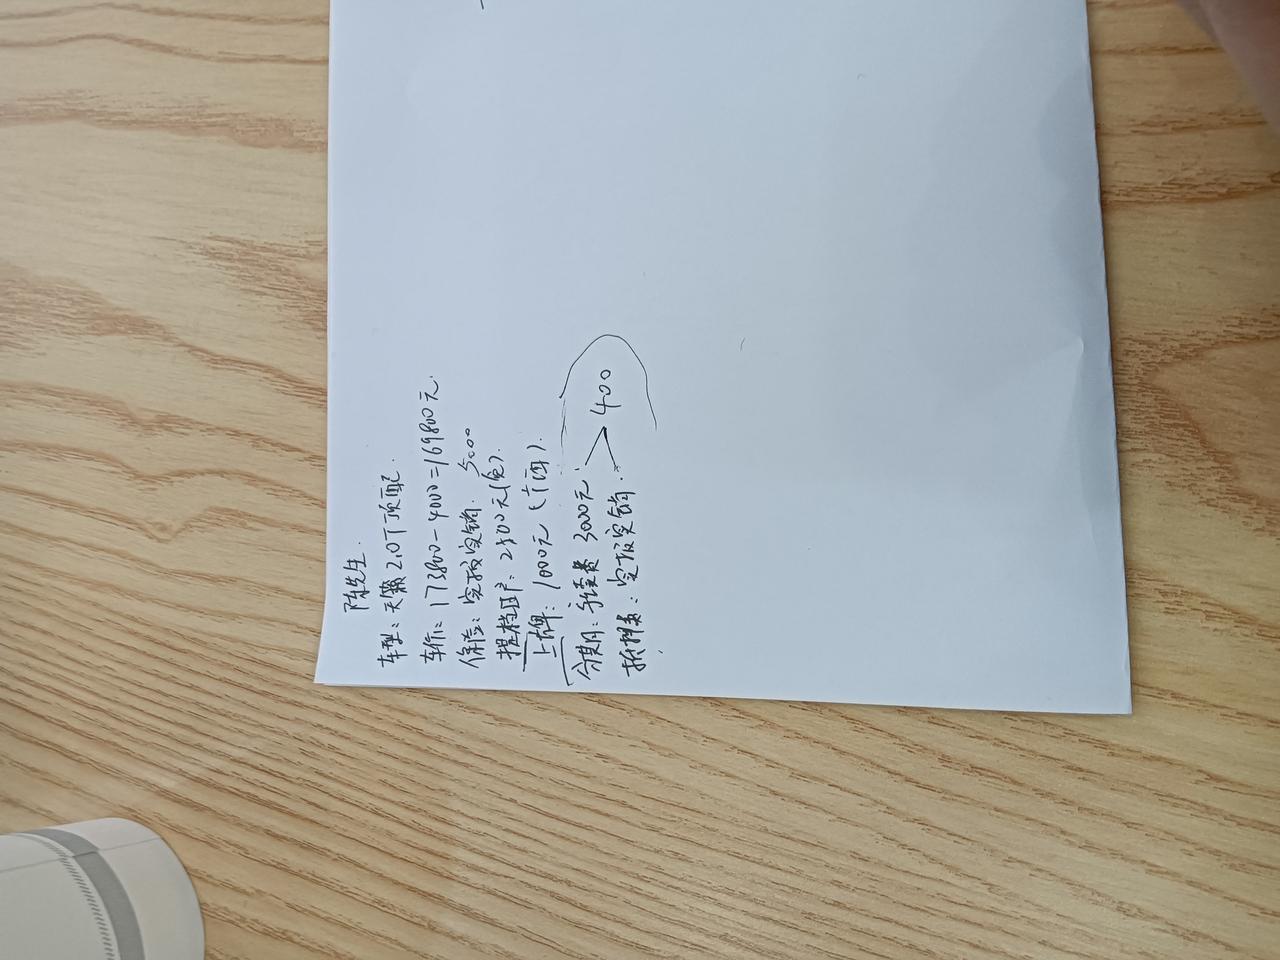 陈先生.
车型:天籁2.0T顶配.
车价:173800-4000=169800元.
保险:实报实销. 5000
提档过户:2800元(免).
上牌:1000元(
分期:手续费 3000元.
抵押费:实报实销. > 400